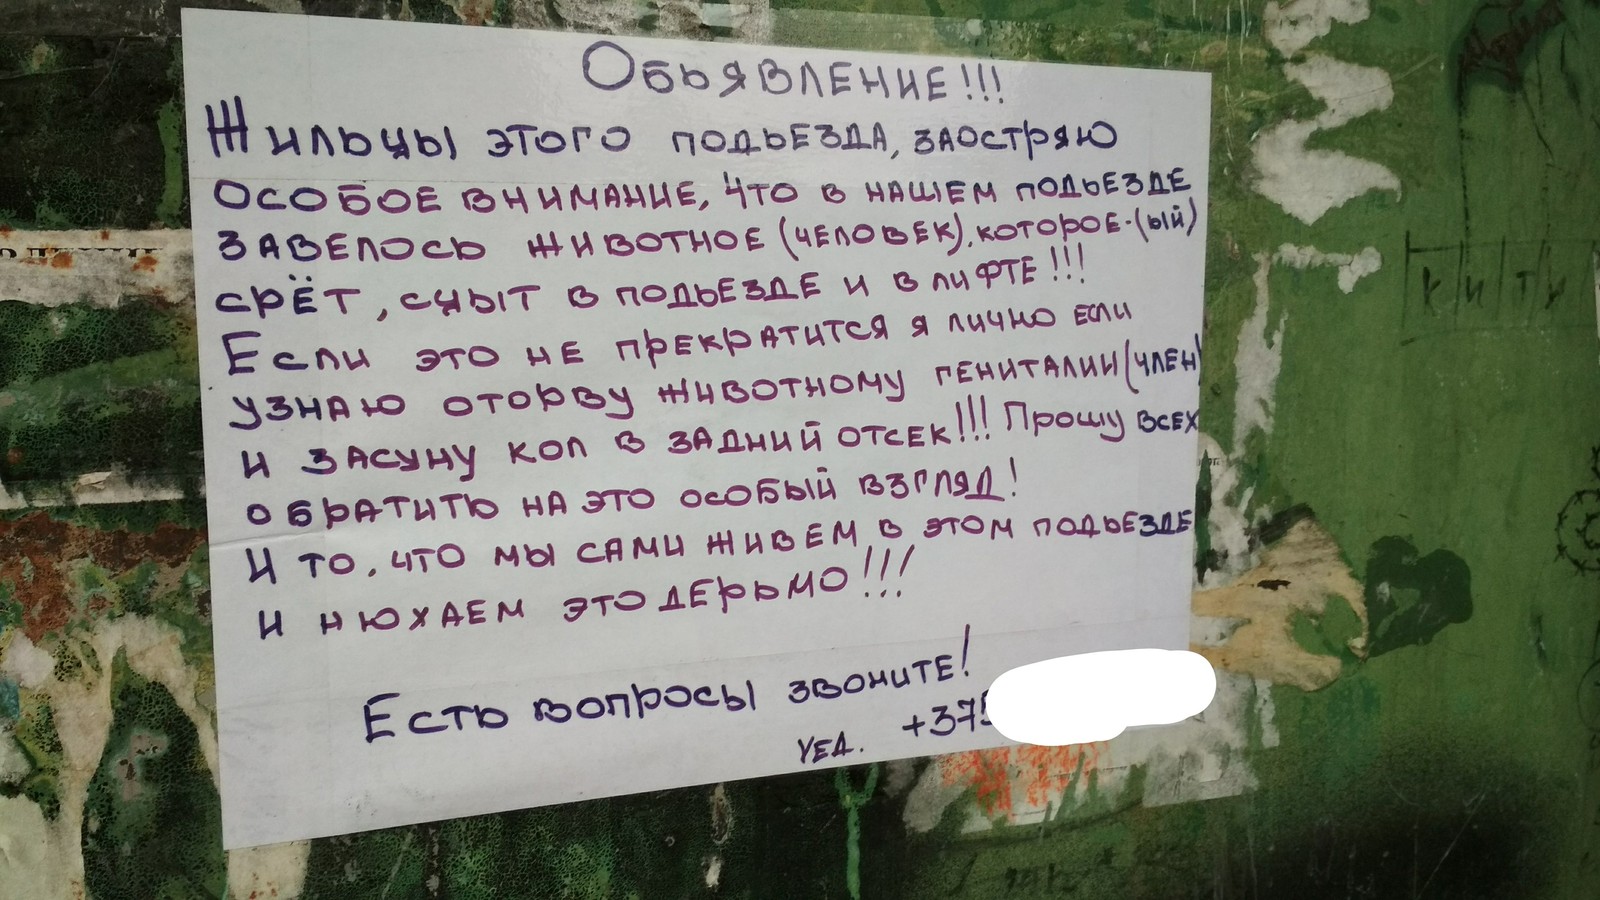 Обьявление!!!
Жильцы этого подьезда, заостряю
особое внимание, что в нашем подьезде
завелось животное (человек), которое-(ый)
срёт, сцыт в подьезде и в лифте!!!
Если это не прекратится я лично если
узнаю оторву животному гениталии (член)
и засуну кол в задний отсек!!! Прошу всех
обратить на это особый взгляд!
И то, что мы сами живем в этом подьезде
и нюхаем это дерьмо!!!
Есть вопросы звоните!
+375
КИТИ